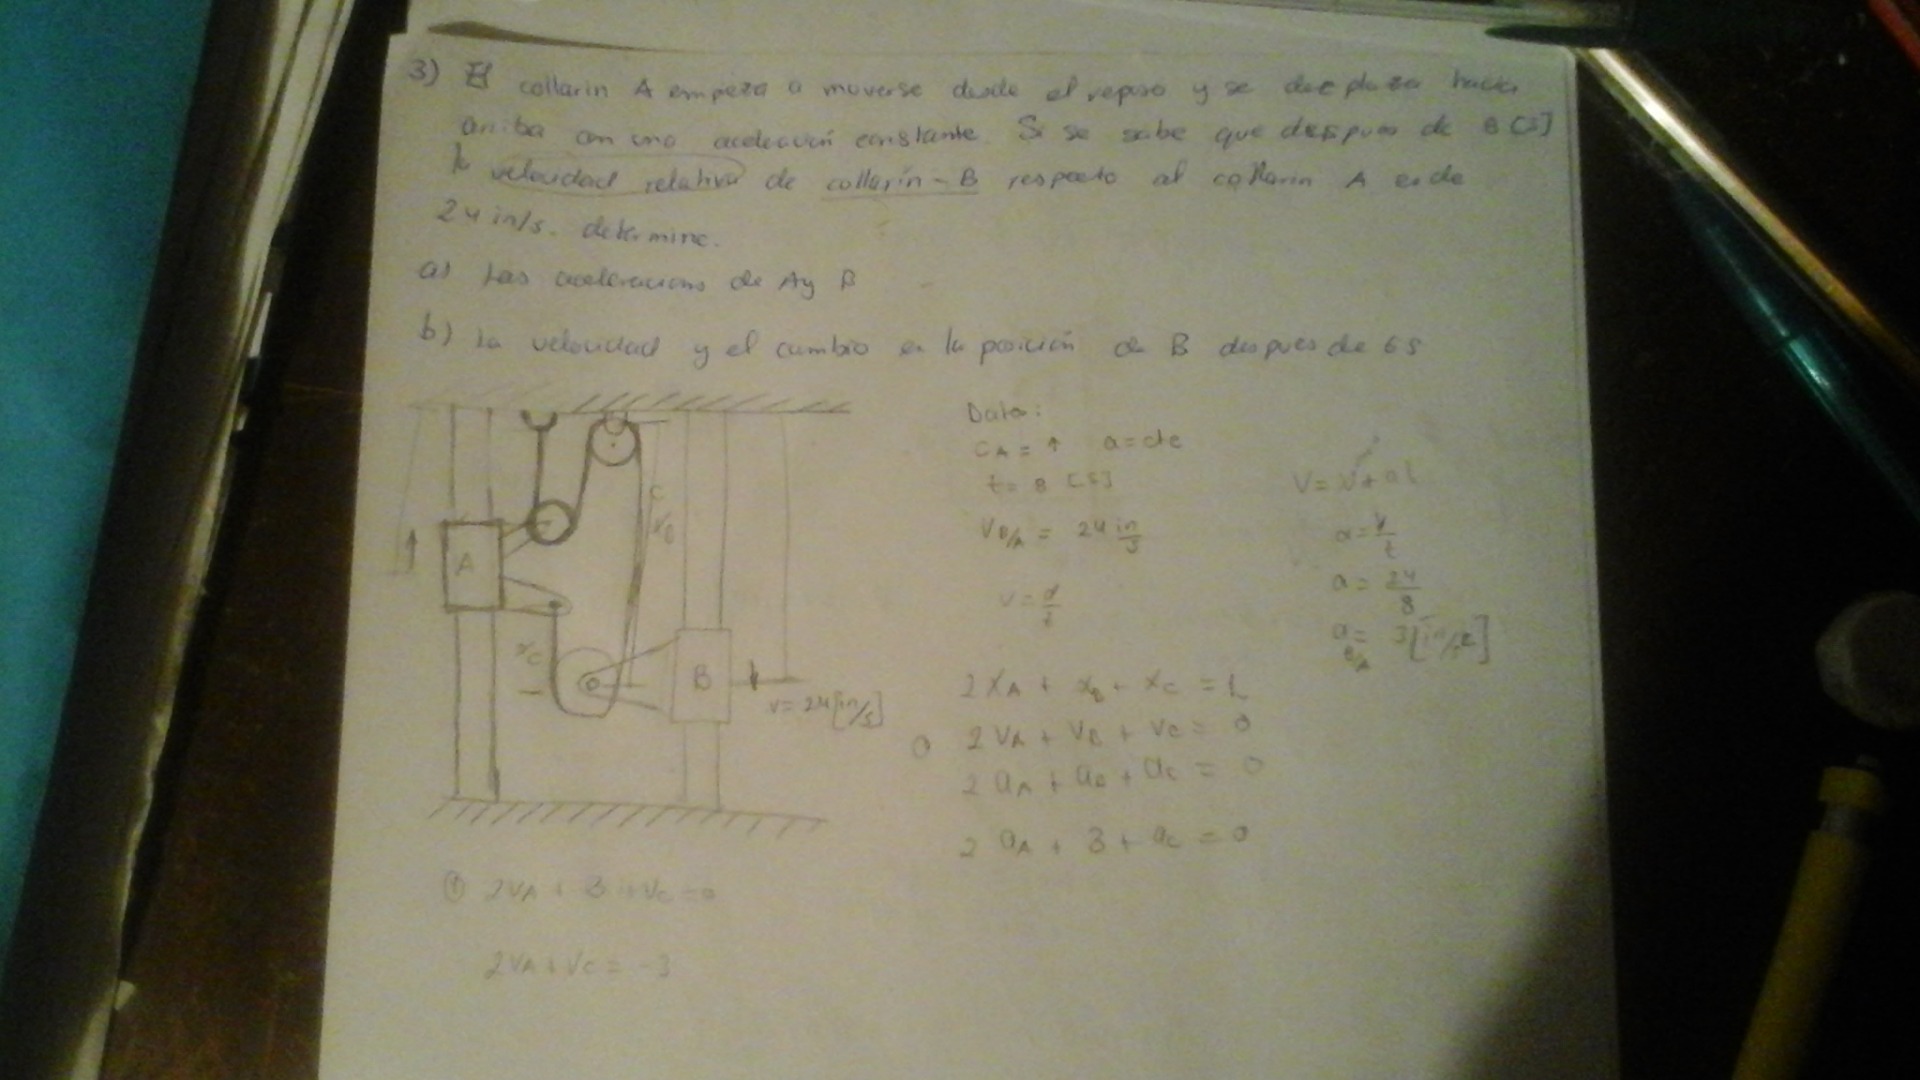 3) El collarin A empeza a moverse desde el reposo y se desplaza hacia
arriba con una aceleración constante. Si se sabe que despues de 8 [s]
la velocidad relativa de collarín-B respecto al collarin A es de
24 in/s. determine.
a) Las aceleracions de A y B
b) La velocidad y el cambio en la posición de B despues de 6 s
Dato:
CA = ↑ a = cte
t = 8 [s]
VB/A = 24 in/s
v = d/t
V = V + at
a = v/t
a = 24/8
a B/A = 3 [in/s²]
A
C
xB
xC
B
v = 24 [in/s]
2xA + xB + xC = L
2VA + VB + VC = 0
2aA + aB + aC = 0
2aA + 3 + aC = 0
① 2VA + 3 + VC = 0
2VA + VC = -3